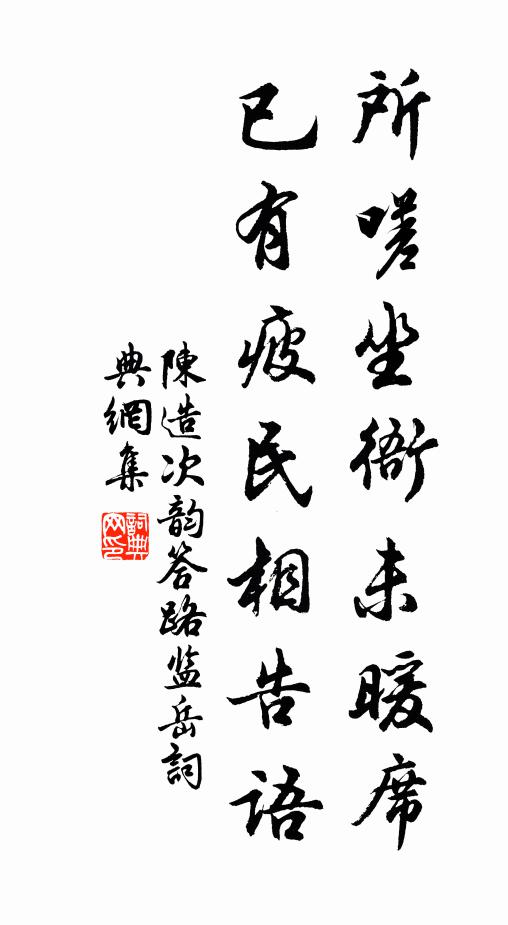 所嗟坐衙未暖席
已有疲民相告語
陳造次韵答路监岳詞
典網集
詞典
网印